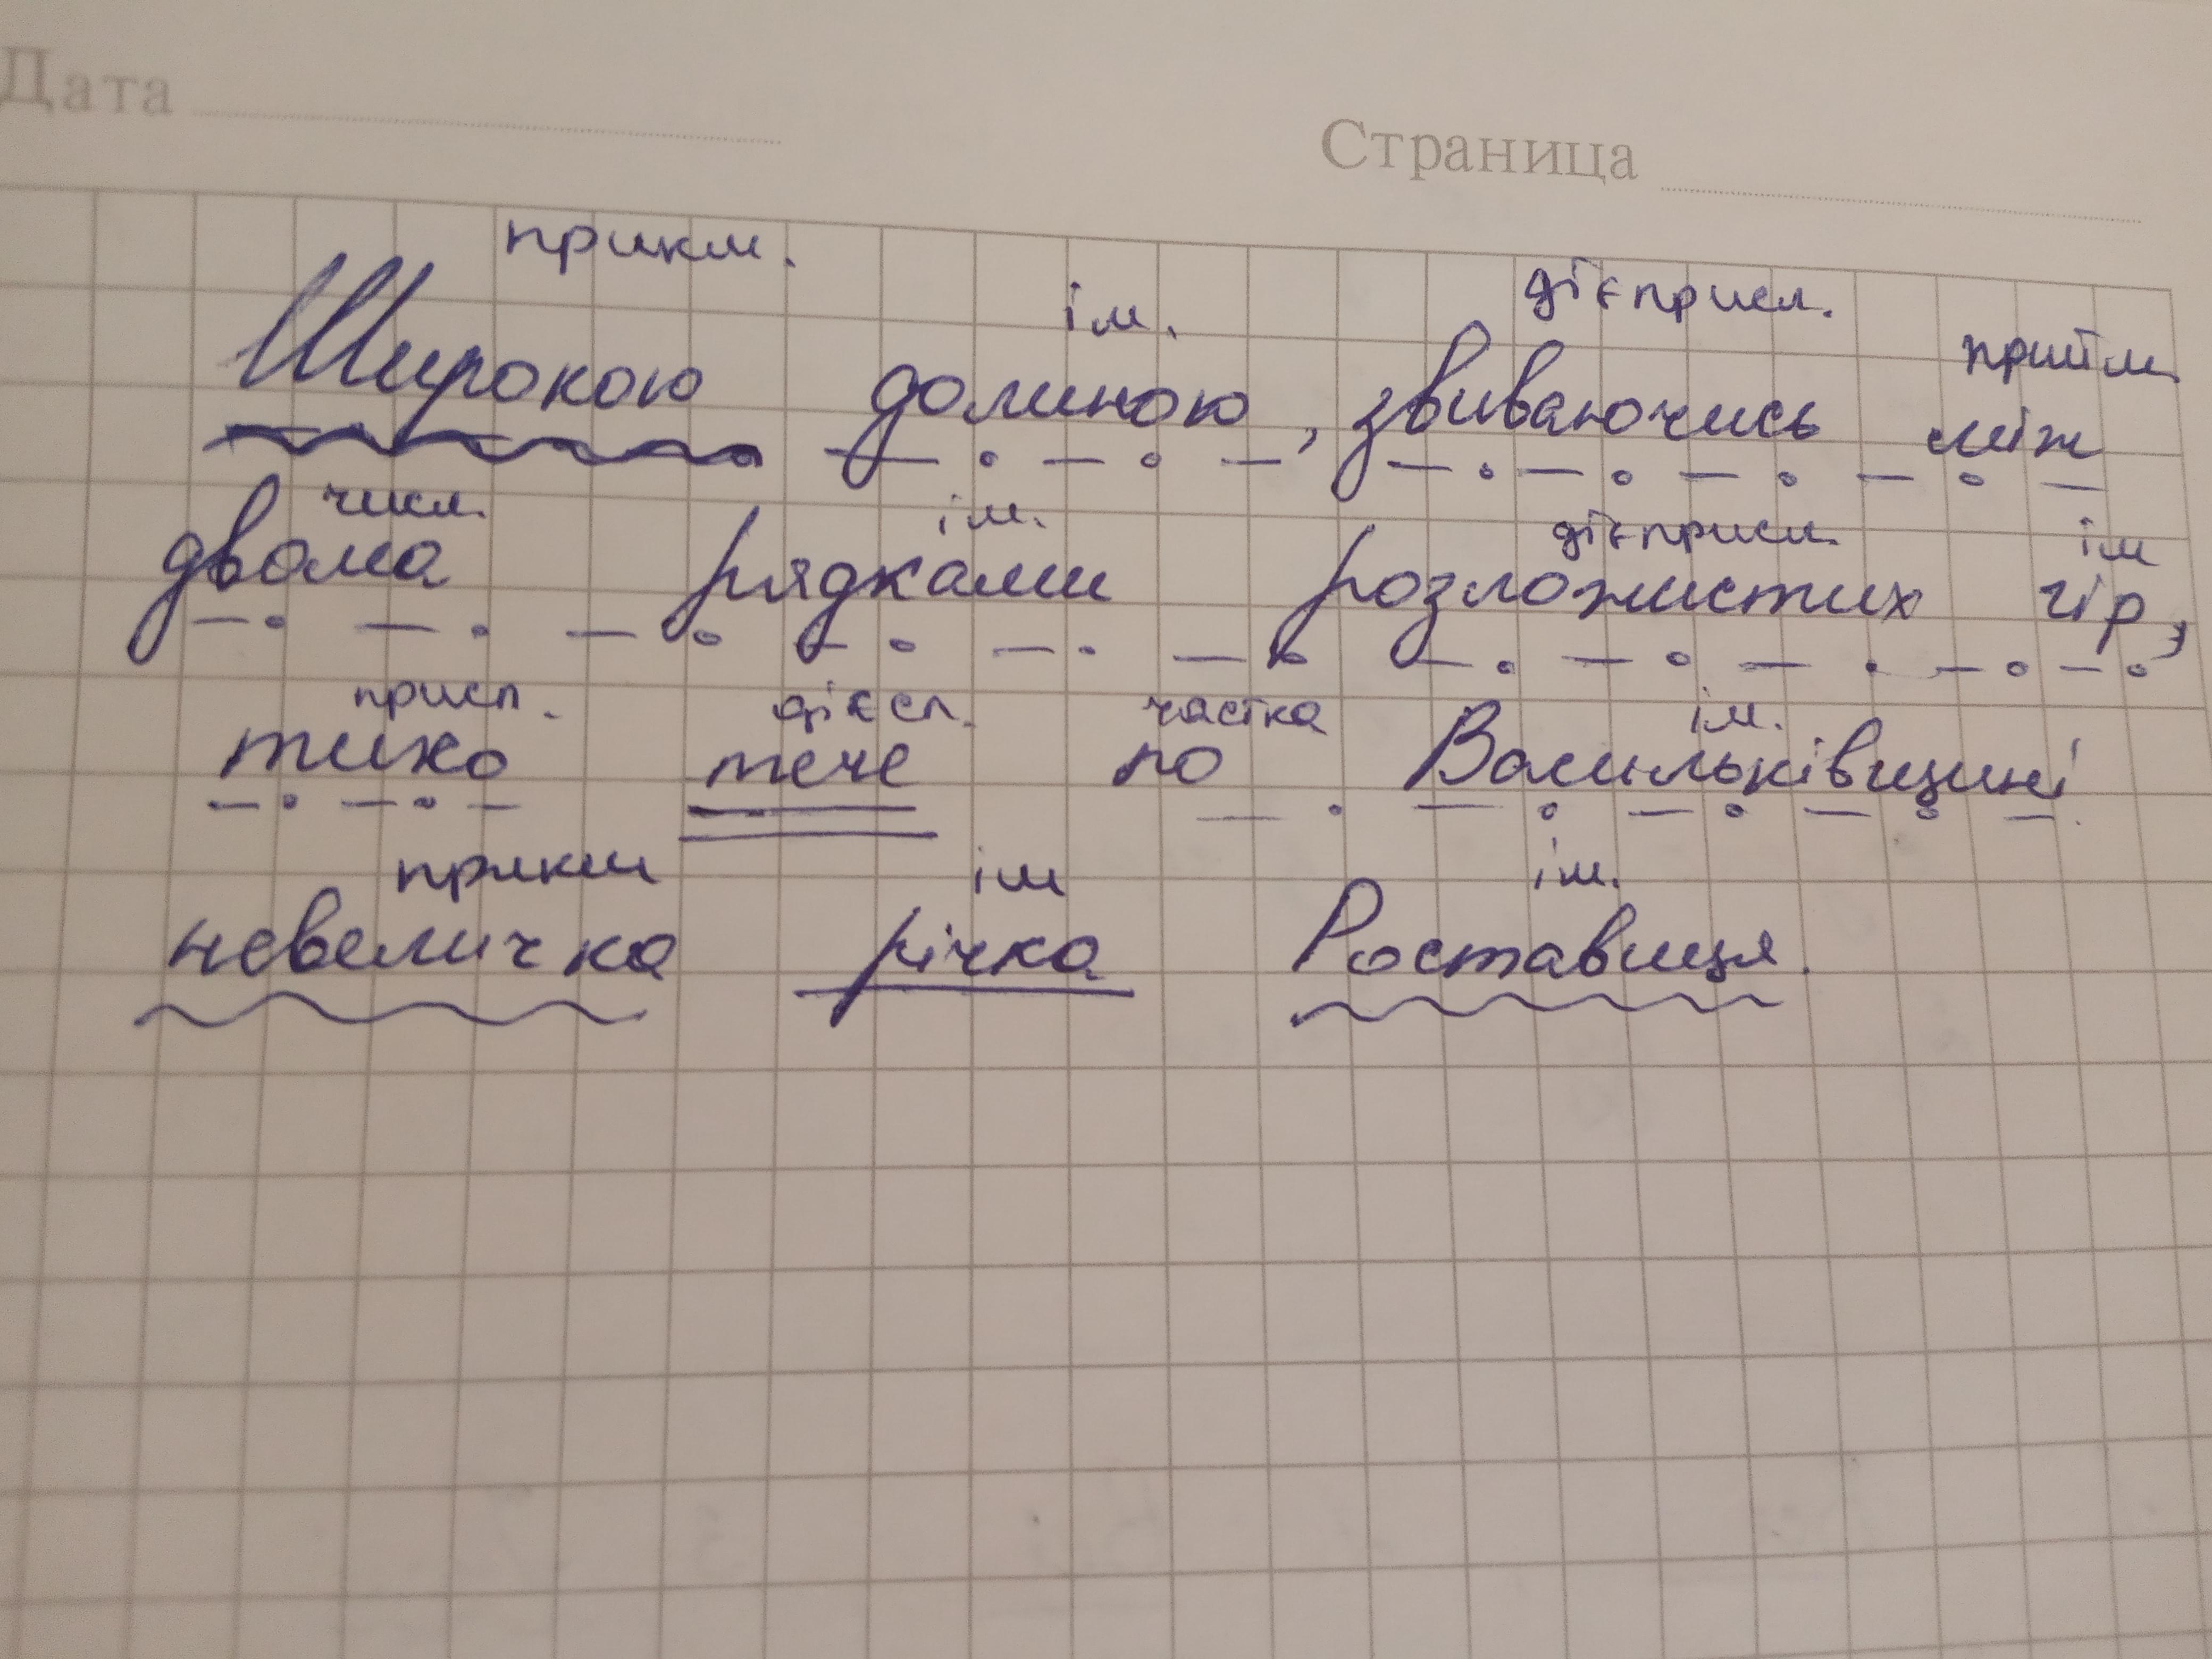 Дата
Страница
прикм. ім. дієприсл. прийм.
Широкою долиною, звиваючись між
числ. ім. дієприсл. ім
двома рядками розложистих гір,
присл. дієсл. частка ім.
тихо тече по Васильківщині
прикм ім ім.
невеличка річка Роставиця.